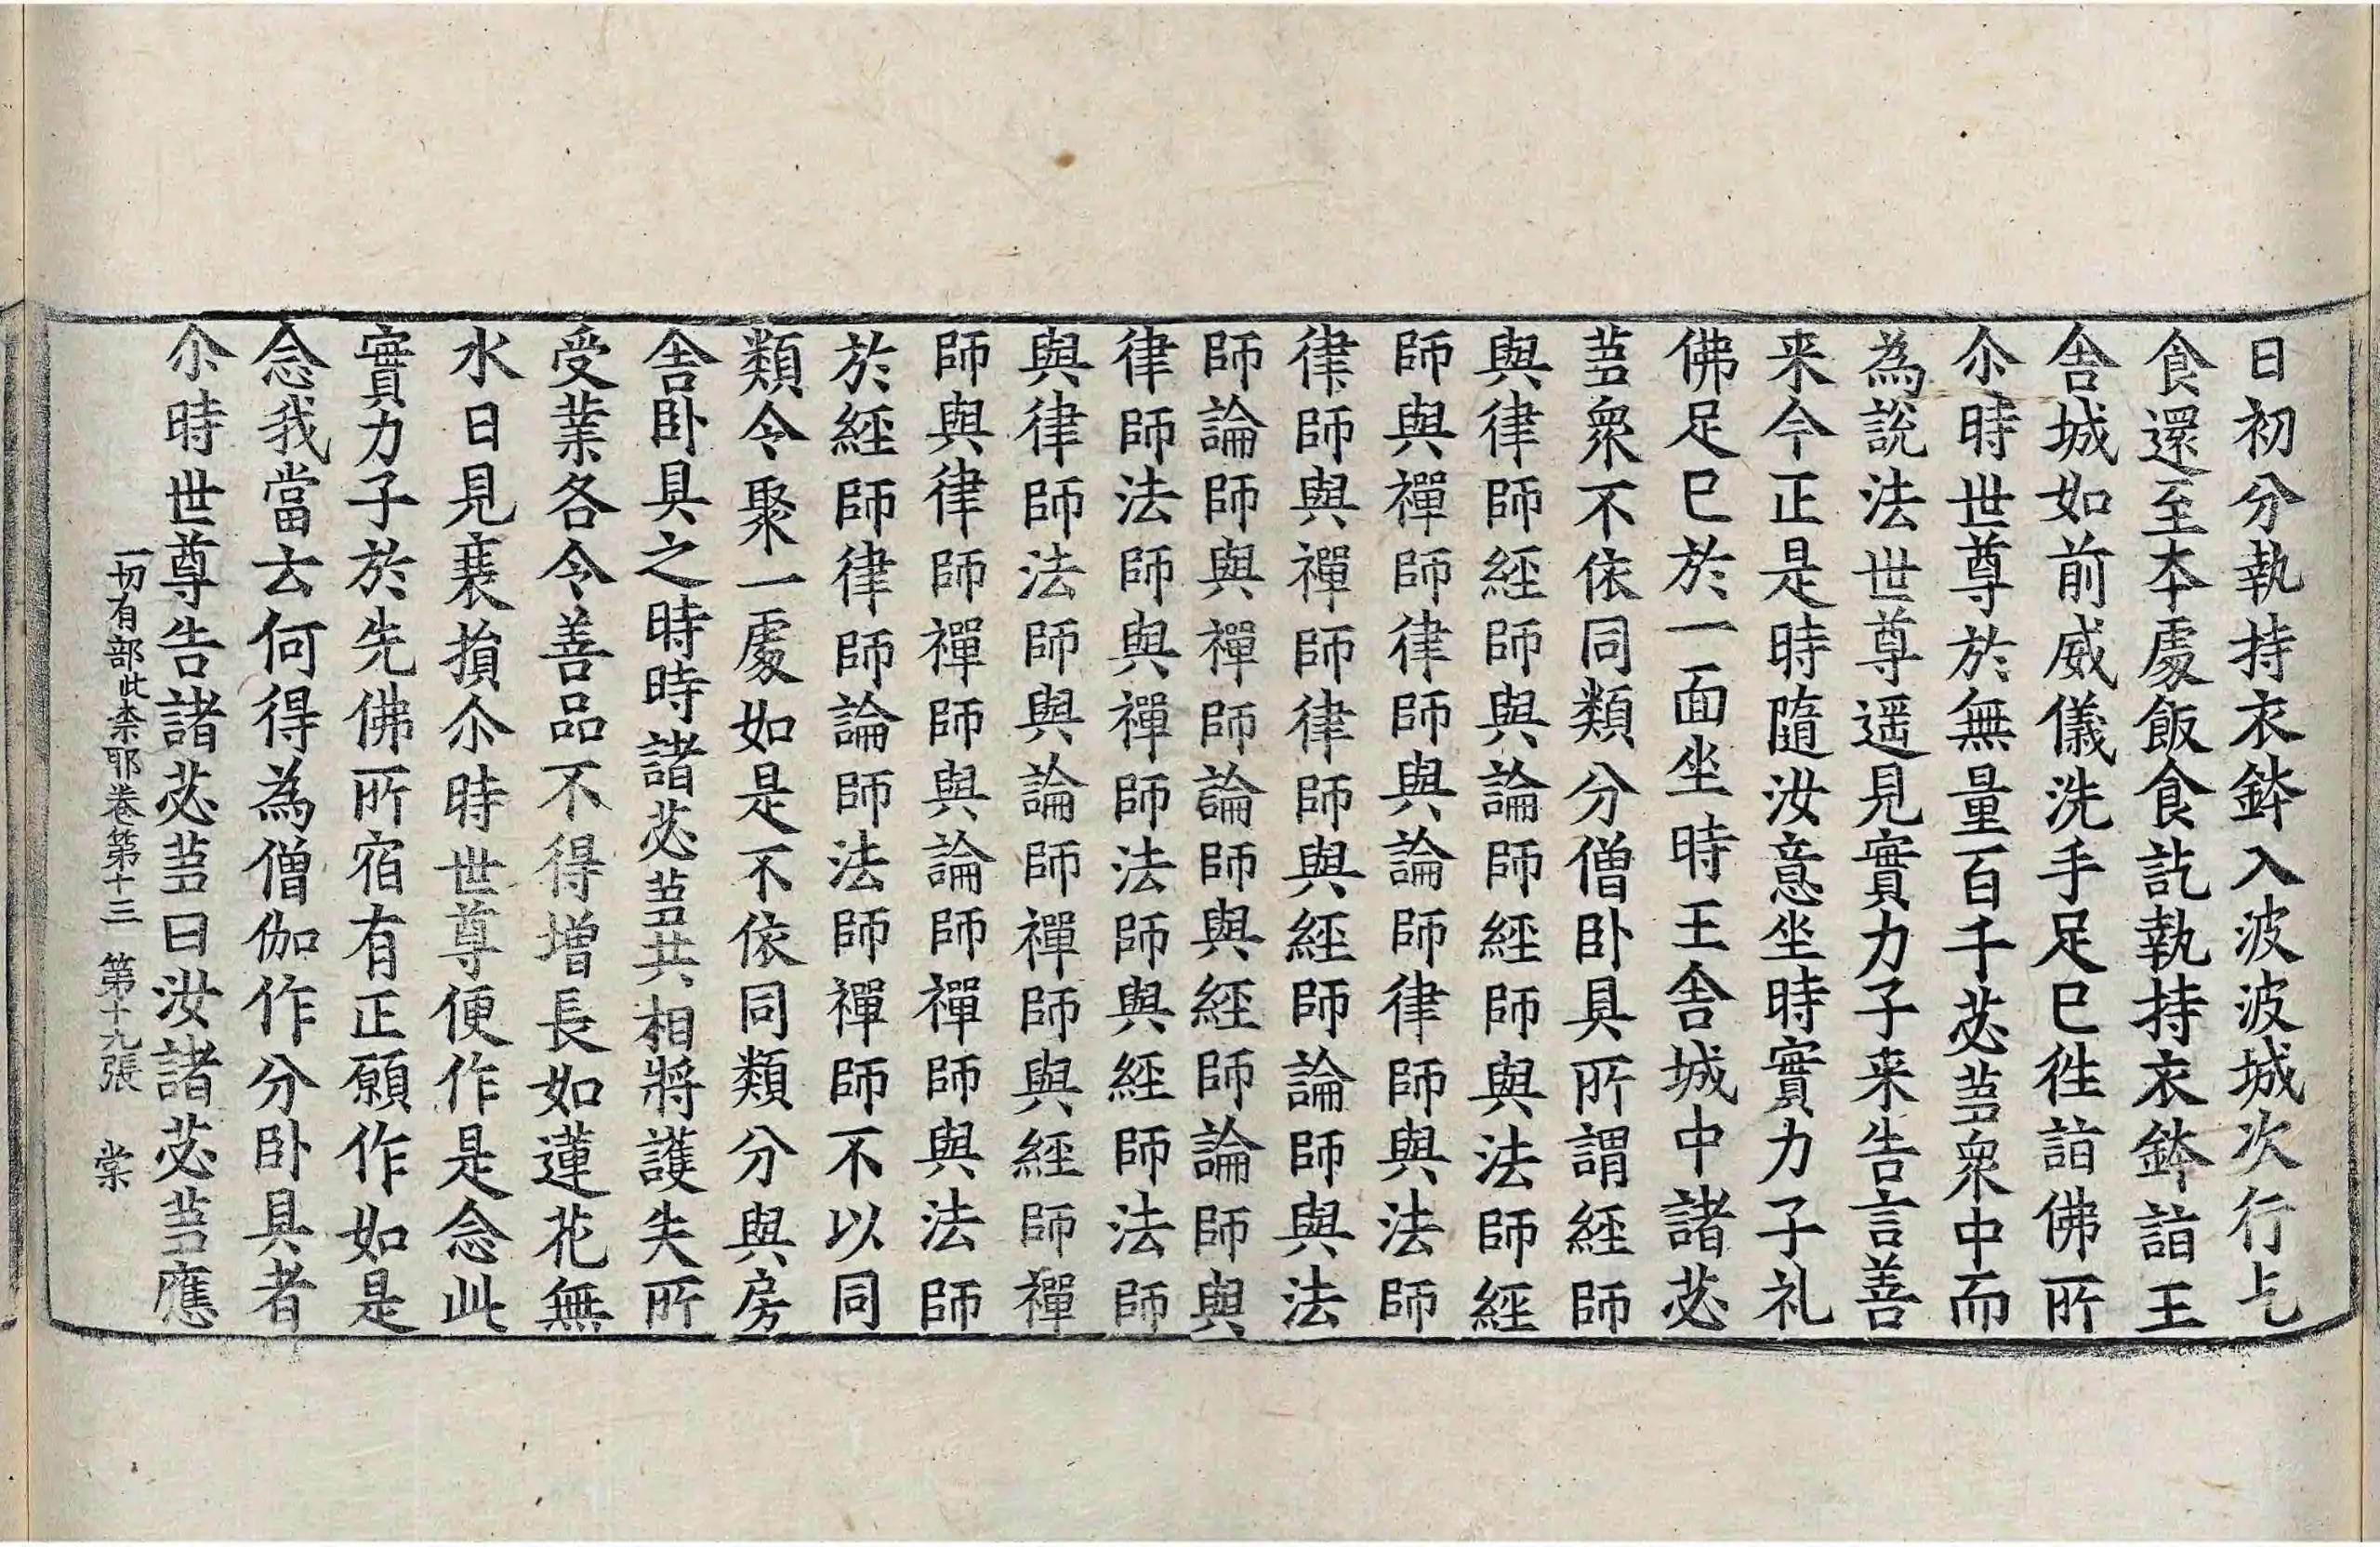 日初分執持衣鉢入波波城次行乞
食還至本處飯食訖執持衣鉢詣王
舍城如前威儀洗手足已徃詣佛所
尒時世尊於無量百千苾芻衆中而
為說法世尊遥見實力子来告言善
来今正是時隨汝意坐時實力子礼
佛足已於一面坐時王舍城中諸苾
芻衆不依同類分僧卧具所謂經師
與律師經師與論師經師與法師經
師與禪師律師與論師律師與法師
律師與禪師律師與經師論師與法
師論師與禪師論師與經師論師與
律師法師與禪師法師與經師法師
與律師法師與論師禪師與經師禪
師與律師禪師與論師禪師與法師
於經師律師論師法師禪師不以同
類令聚一處如是不依同類分與房
舍卧具之時時諸苾芻共相將護失所
受業各令善品不得增長如蓮花無
水日見衰損尒時世尊便作是念此
實力子於先佛所宿有正願作如是
念我當云何得為僧伽作分卧具者
尒時世尊告諸苾芻曰汝諸苾芻應
一切有部毗柰耶卷第十三 第十九張 棠